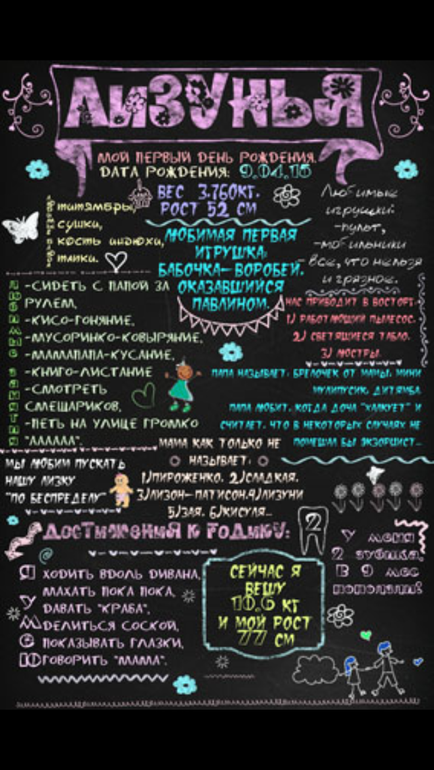 ЛИЗУНЬЯ
МОЙ ПЕРВЫЙ ДЕНЬ РОЖДЕНИЯ.
ДАТА РОЖДЕНИЯ: 9.04.15
ВЕС 3.760КГ.
РОСТ 52 СМ
титямбры,
сушки,
кость индюхи,
тапки.
ЛЮБИМАЯ ПЕРВАЯ
ИГРУШКА:
БАБОЧКА-ВОРОБЕЙ,
ОКАЗАВШИЙСЯ
ПАВЛИНОМ.
Любимые
игрушки:
-пульт,
-мобильники
-все, что нельзя
и грязное.
ЛЮБИМЫЕ ЗАНЯТИЯ
-СИДЕТЬ С ПАПОЙ ЗА
РУЛЕМ,
-КИСО-ГОНЯНИЕ,
-МУСОРИНКО-КОВЫРЯНИЕ,
-МАМАПАПА-КУСАНИЕ,
-КНИГО-ЛИСТАНИЕ
-СМОТРЕТЬ
СМЕШАРИКОВ,
-ПЕТЬ НА УЛИЦЕ ГРОМКО
"АЛАЛАА".
НАС ПРИВОДИТ В ВОСТОРГ:
1) РАБОТАЮЩИЙ ПЫЛЕСОС.
2) СВЕТЯЩИЕСЯ ТАБЛО.
3) ЛЮСТРЫ.
ПАПА НАЗЫВАЕТ: БРЕЛОЧЕК ОТ МАМЫ, МИНИ
МУЛИПУСИК, ДИТЯМБА.
ПАПА ЛЮБИТ, КОГДА ДОЧА "ХАЛКУЕТ" И
СЧИТАЕТ, ЧТО В НЕКОТОРЫХ СЛУЧАЯХ НЕ
ПОМЕШАЛ БЫ ЭКЗОРЦИСТ...
МАМА КАК ТОЛЬКО НЕ
НАЗЫВАЕТ:
1)ПИРОЖЕНКО. 2)СЛАДКАЯ.
3)ЛИЗОН-ПАТИСОН.4)ЛИЗУНИ
5)ЗАЯ. 6)КИСУЛЯ...
МЫ ЛЮБИМ ПУСКАТЬ
НАШУ ЛИЗКУ
"ПО БЕСПРЕДЕЛУ"
ДОСТИЖЕНИЯ К ГОДИКУ:
2
У меня
2 зубика,
В 9 мес
поползла!
Я УМЕЮ
ХОДИТЬ ВДОЛЬ ДИВАНА,
МАХАТЬ ПОКА ПОКА,
ДАВАТЬ "КРАБА",
ДЕЛИТЬСЯ СОСКОЙ,
ПОКАЗЫВАТЬ ГЛАЗКИ,
ГОВОРИТЬ "МАМА".
СЕЙЧАС Я
ВЕШУ
10,6 КГ
И МОЙ РОСТ
77 СМ